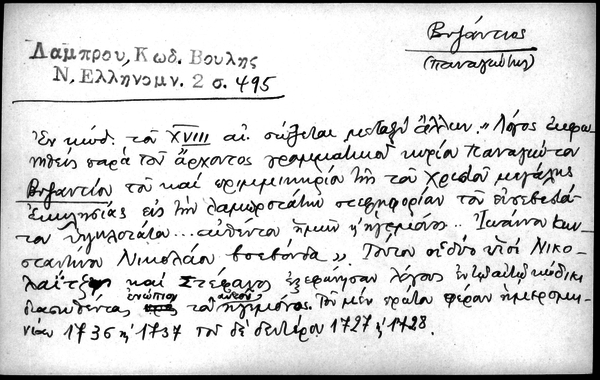 Βυζάντιος
(Παναγιώτης)
Λάμπρου, Κωδ. Βουλης
Ν. Ελληνομν. 2 σ. 495
Ἐν κώδ. τοῦ XVIII αἰ. σώζεται μεταξὺ ἄλλων "Λόγος ἐκφω
νηθεὶς παρὰ τοῦ ἄρχοντος γραμματικοῦ κυρίου Παναγιώτου
Βυζαντίου τοῦ καὶ πριμμικηρίου τῆς τοῦ Χριστοῦ μεγάλης
Ἐκκλησίας εἰς τὴν λαμπροτάτην στεφηφορίαν τοῦ εὐσεβεστά-
του ὑψηλοτάτου... αὐθέντου ἡμῶν κ' ἡγεμόνος.. Ἰωάννου Κων
σταντίνου Νικολάου βοεβόνδα". Τούτου οἱ δύο υἱοὶ Νικο-
λαΐτζης καὶ Στέφανος ἐξεφώνησαν λόγους ἐν τῷ αὐτῷ κώδικι
διασωθέντας ἐνώπιον τοῦ αὐτοῦ ἡγεμόνος. Τοῦ μὲν πρώτου φέρουν ἡμερομη-
νίαν 1736 ἢ 1737 τοῦ δὲ δευτέρου 1727 ἢ 1728.